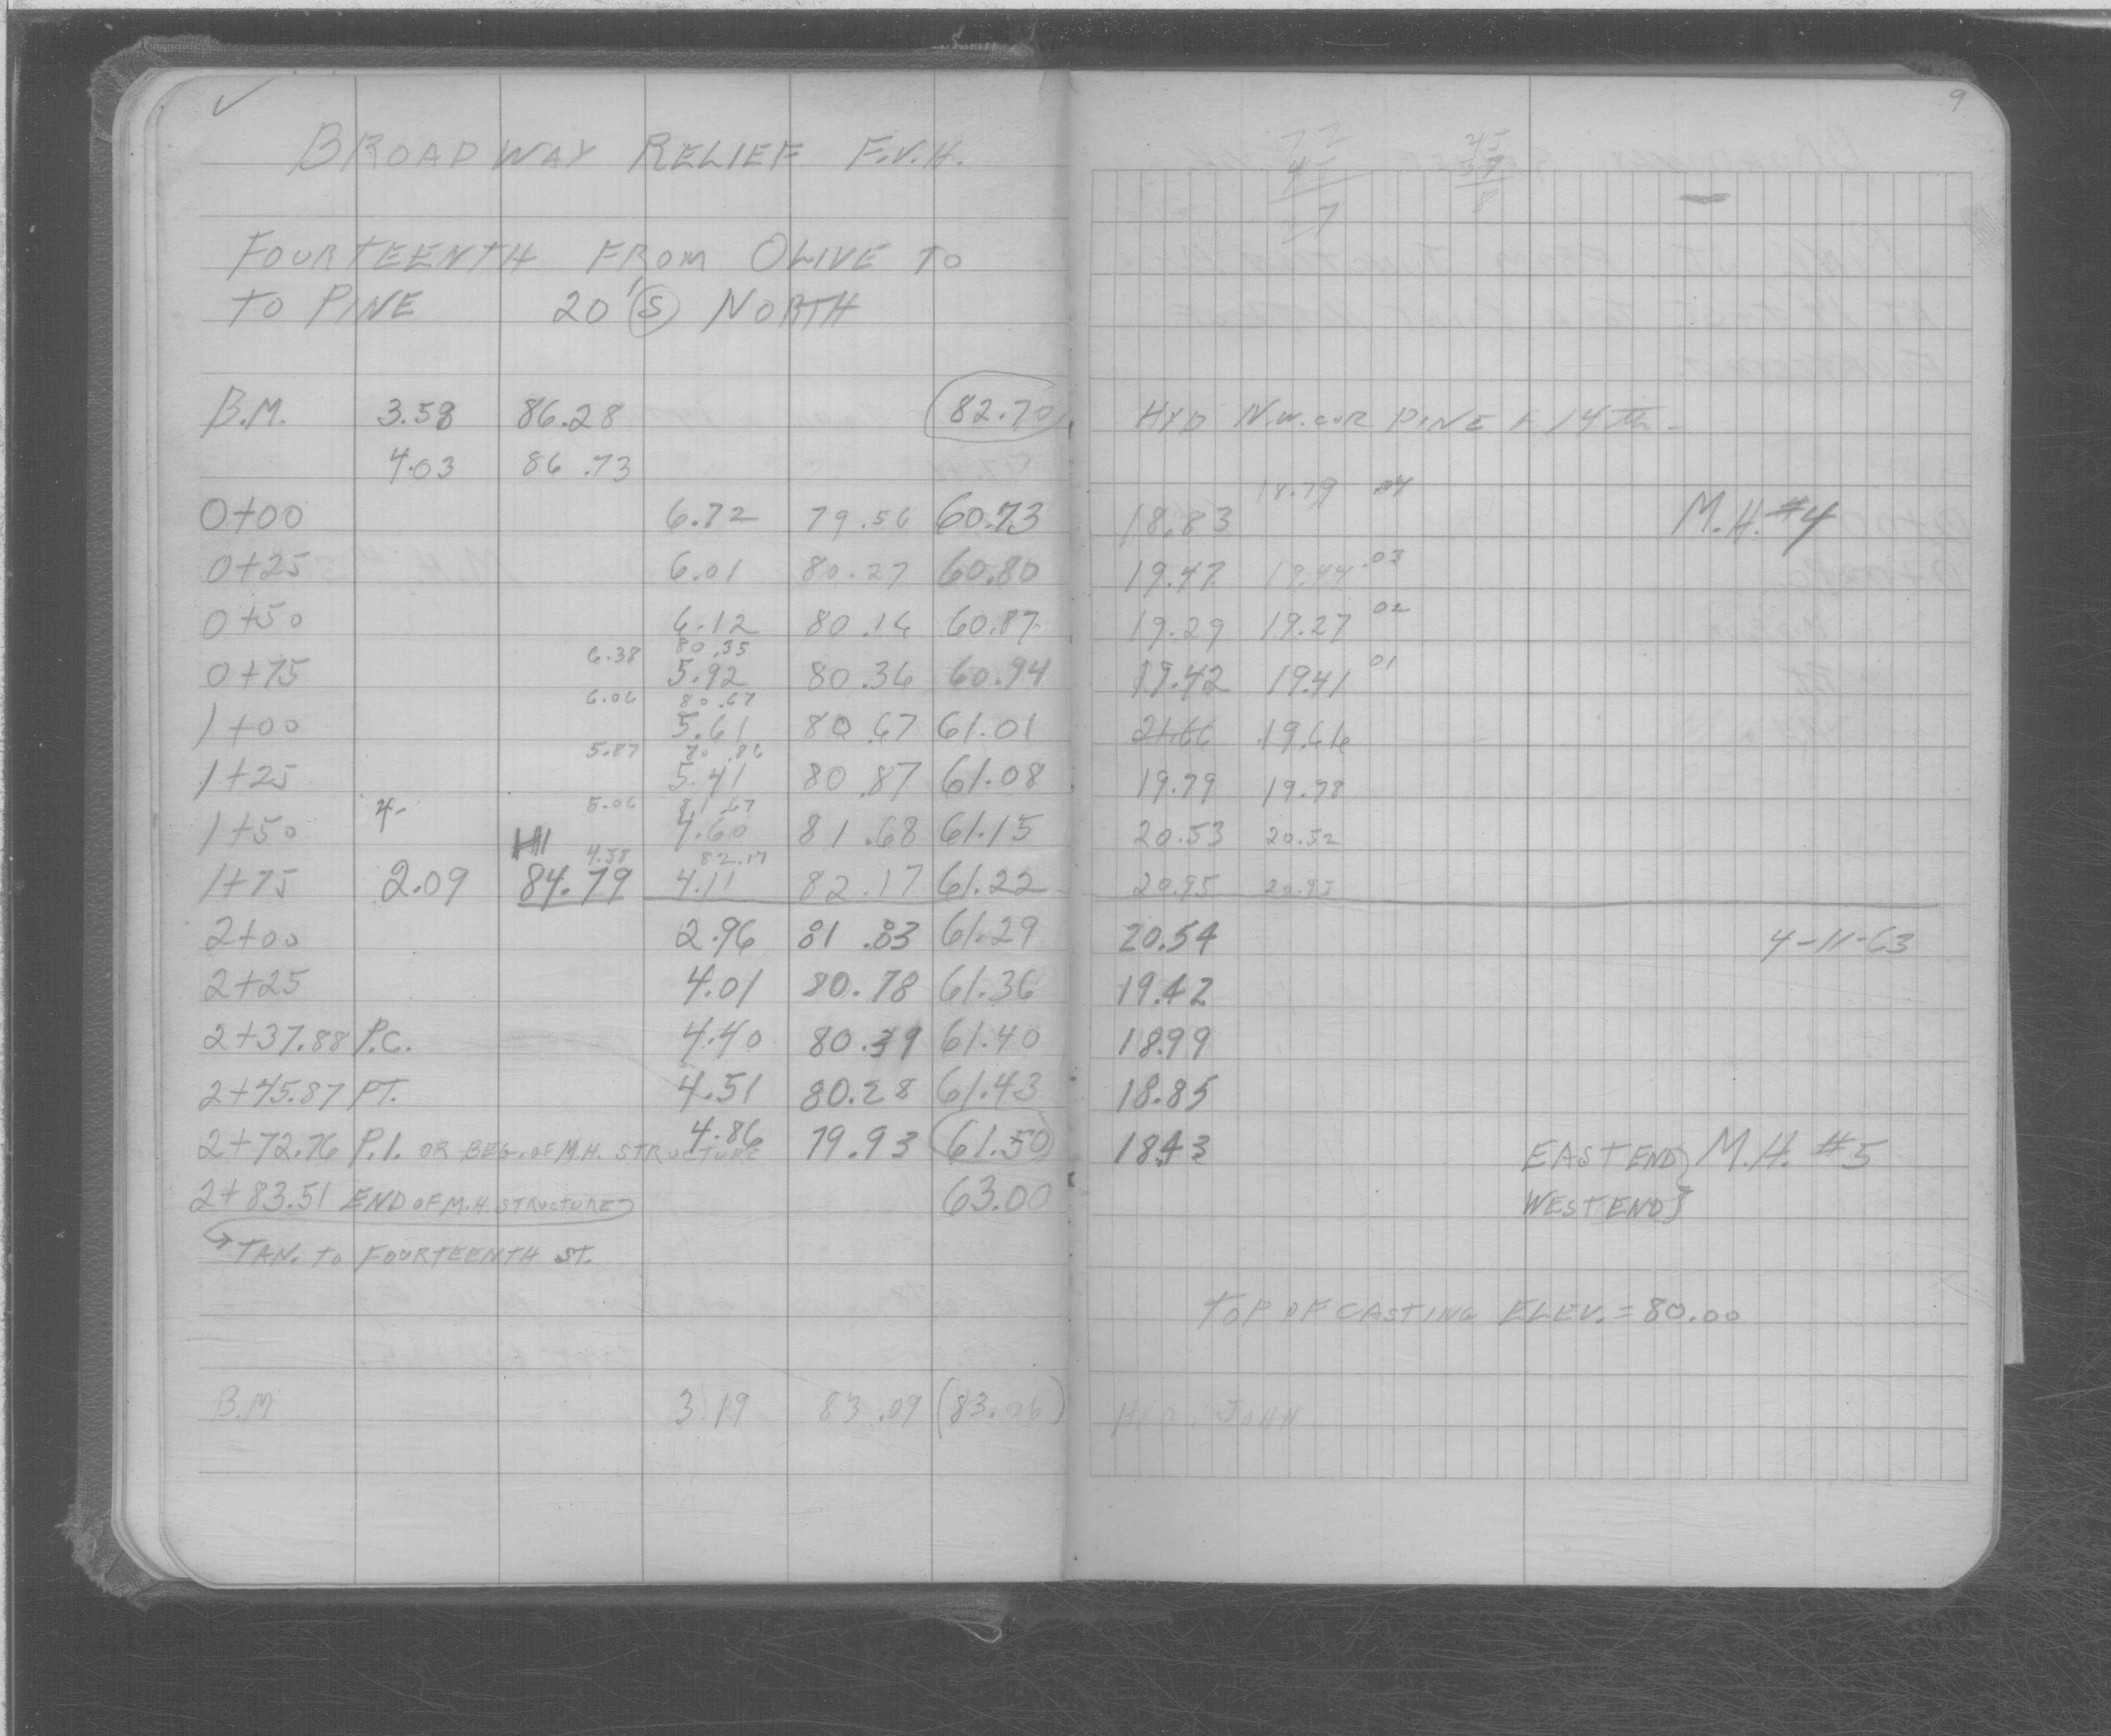 ✓
9
BROADWAY RELIEF F.V.H.
72
45
27
FOURTEENTH FROM OLIVE TO
TO PINE 20' (S) NORTH
B.M. 3.58 86.28 82.70 HYD N.W. COR PINE & 14TH
4.03 86.73
18.79 04
0+00 6.72 79.56 60.73 18.83 M.H. #4
0+25 6.01 80.27 60.80 19.47 19.44 .03
0+50 6.12 80.16 60.87 19.29 19.27 02
6.38 80.35
0+75 5.92 80.36 60.94 19.42 19.41 01
6.06 80.67
1+00 5.61 80.67 61.01 21.66 19.66
5.87 80.86
1+25 5.41 80.87 61.08 19.79 19.78
4- 5.06 81.67
1+50 4.60 81.68 61.15 20.53 20.52
HI 4.58 82.17
1+75 2.09 84.79 4.11 82.17 61.22 20.95 20.95
2+00 2.96 81.83 61.29 20.54 4-11-63
2+25 4.01 80.78 61.36 19.42
2+37.88 P.C. 4.40 80.39 61.40 18.99
2+45.87 PT. 4.51 80.28 61.43 18.85
2+72.76 P.I. OR BEG. OF M.H. STRUCTURE 4.86 79.93 61.50 18.43 EAST END} M.H. #5
2+83.51 END OF M.H. STRUCTURE 63.00 WEST END}
TAN. TO FOURTEENTH ST.
TOP OF CASTING ELEV. = 80.00
B.M 3.19 83.09 (83.06) HYD. JOHN